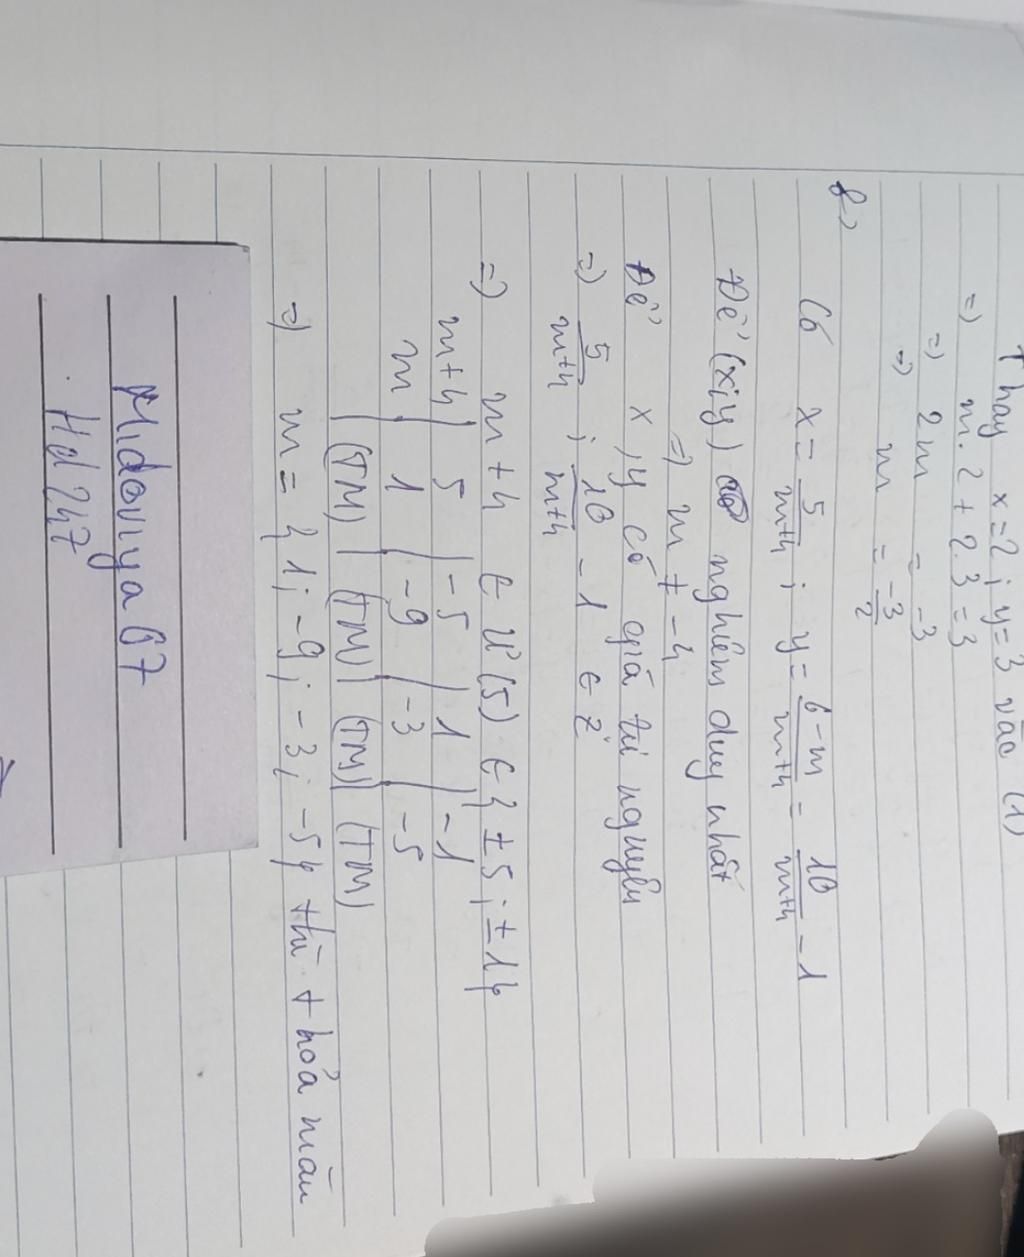 Thay x=2; y=3 vào (1)
=) m.2 + 2.3 = 3
=) 2m = -3
=) m = -3/2
b)
Có x = 5/m+4 ; y = 6-m/m+4 = 10/m+4 - 1
Để (x;y) nghiệm duy nhất
=) m ≠ -4
Để x, y có giá trị nguyên
=) 5/m+4 ; 10/m+4 - 1 ∈ Z
=) m+4 ∈ Ư(5) ∈ { ±5; ±1}
m+4 | 5 | -5 | 1 | -1
m | 1 | -9 | -3 | -5
| (TM) | (TM) | (TM) | (TM)
=) m = { 1; -9; -3; -5} thì thỏa mãn
Midoviya07
Hd247